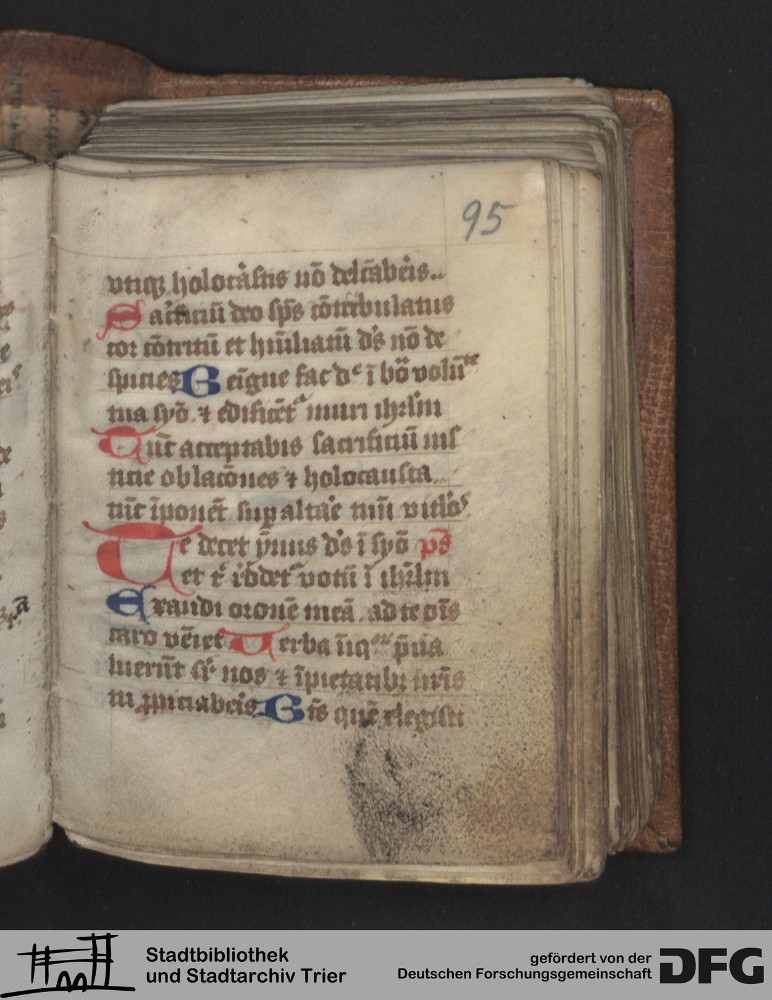 95
vtiqꝫ holocāstis nō delc̄aber̄is..
Sac̄ficiū deo sp̄s cōtribulatus
cor cōtritū et hūiliatū ds̄ nō de
spicies Beīgne fac dᵉ ī bō volūᵗᵉ
tua syō ⁊ edificēt᷑ muri ihrl̄m
Tūc acceptabis sacrificiū ius
ticie oblacōnes ⁊ holocausta
tūc īponēt sup altar̄e tuū vitlōs
Te decet ẏmnus ds̄ ī syō ps̄
et t̄ r̄ddet᷑ votū ī ihrl̄m
Exaudi oronē meā ad te oīs
caro vēiet Uerba īiqᵒʳ p̄ua
luerūt sr̄ nos ⁊ īpietatibꝫ nr̄is
tu ꝓpiciaber̄is Bt̄s quē elegisti
Stadtbibliothek
und Stadtarchiv Trier
gefördert von der
Deutschen Forschungsgemeinschaft
DFG